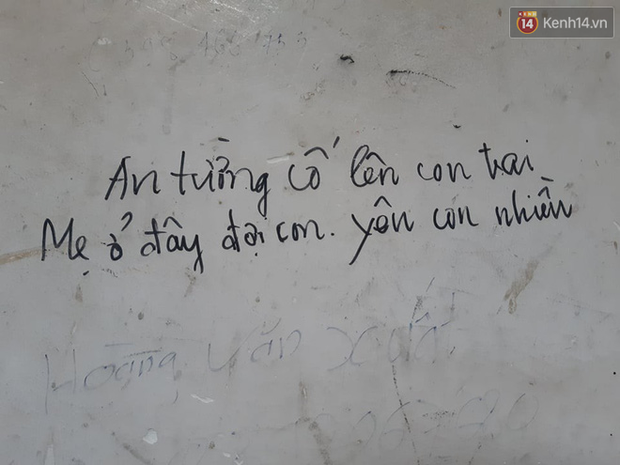 14 Kenh14.vn
An tưởng cố lên con trai
Mẹ ở đây đợi con. yên con nhiều
Hoàng Văn